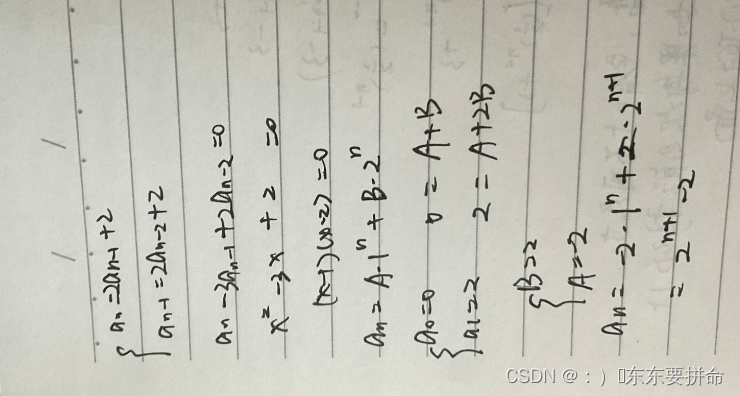 { an = 2an-1 + 2
an-1 = 2an-2 + 2
an - 3an-1 + 2an-2 = 0
x² - 3x + 2 = 0
(x-1)(x-2) = 0
an = A·1ⁿ + B·2ⁿ
{ a0 = 0 0 = A+B
a1 = 2 2 = A+2B
{ B = 2
A = -2
an = -2·1ⁿ + 2·2ⁿ⁺¹
= 2ⁿ⁺¹ - 2
CSDN @：）东东要拼命